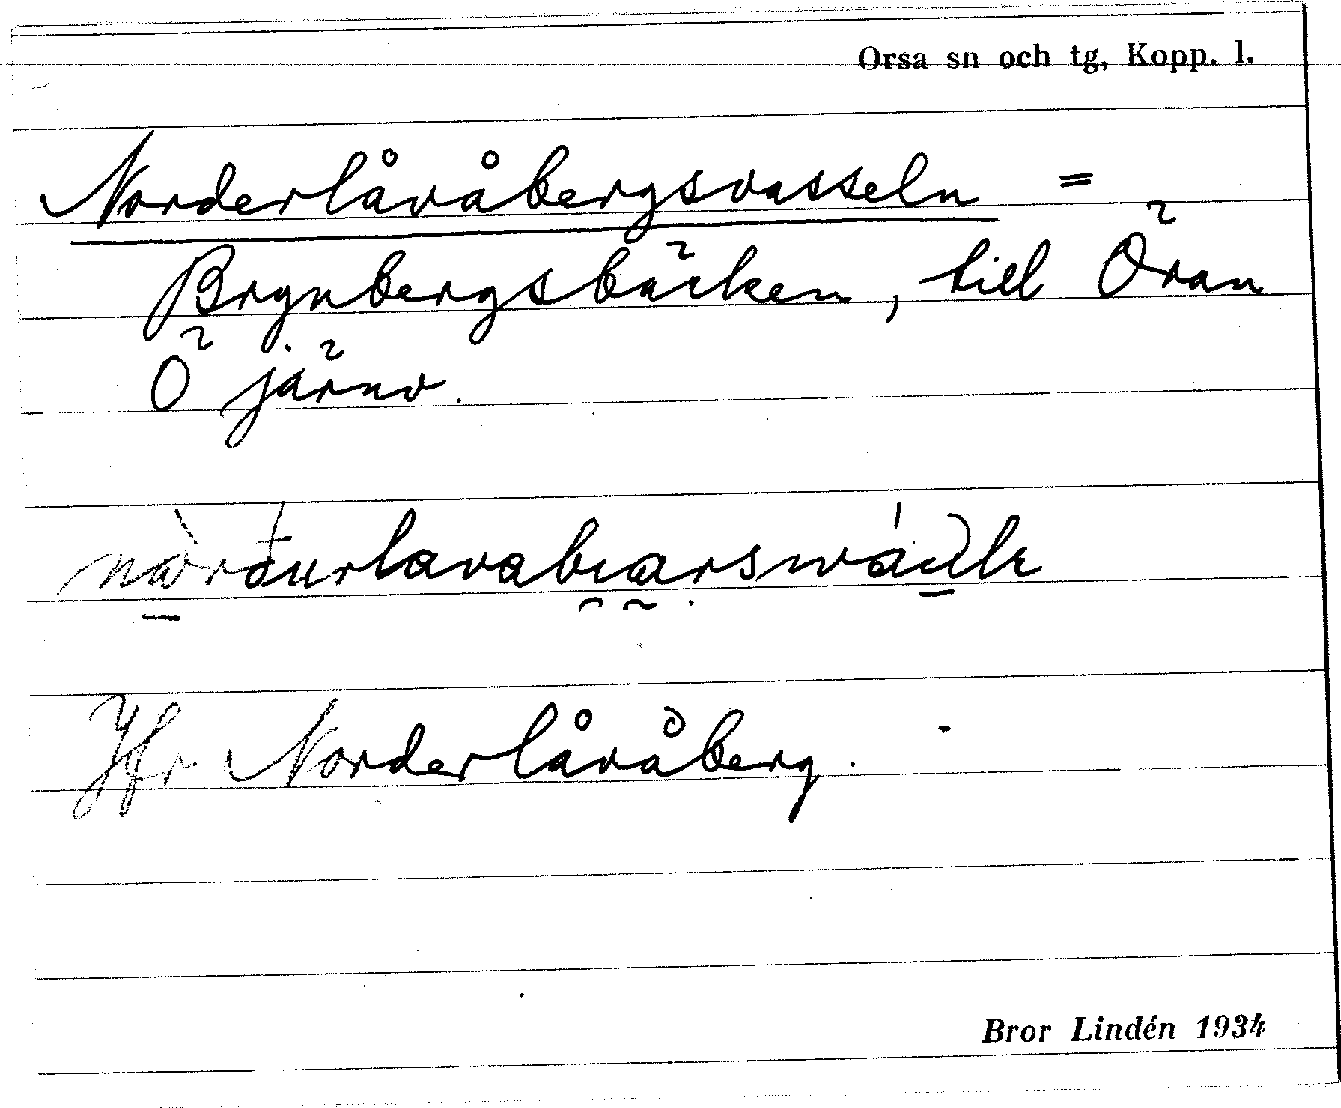 Orsa sn och tg, Kopp. l.
Norderlåvåbergsvasseln =
Brynbergsbäcken, till Öran
Ö järnv.
Jfr Norderlåvåberg.
Bror Lindén 1934